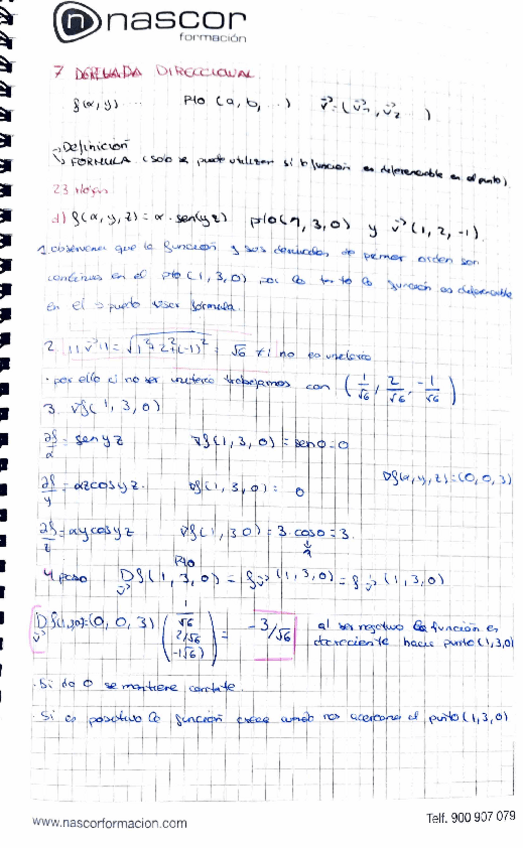 nascor
formación
7 DERIVADA DIRECCIONAL
f(x,y) ... Pto (a, b, ...) v⃗=(v⃗1, v⃗2 ...)
→Definición
↳ FÓRMULA (solo se puede utilizar si la función es diferenciable en el punto)
23 Hojas
d) f(x,y,z)=x·sen(yz) pto(1,3,0) y v⃗(1,2,-1).
1. observamos que la función y sus derivadas de primer orden son
continuas en el pto (1,3,0) por lo tanto la función es diferenciable
en el → puedo usar fórmula.
2. ||v⃗||=√1²+2²+(-1)² = √6 ≠1 no es unitario
· por ello al no ser unitario trabajamos con (1/√6, 2/√6, -1/√6)
3. ∇f(1,3,0)
∂f/x = senyz ∇f(1,3,0)=sen0=0
∂f/y = xzcosyz. ∇f(1,3,0)= 0 ∇f(x,y,z)=(0,0,3)
∂f/z = xycosyz ∇f(1,30)=3·cos0=3.
1
4 paso Pto
D v⃗ f(1,3,0) = f v⃗ (1,3,0)=f v⃗ (1,3,0)
D v⃗ f(1,3,0)=(0,0,3) (1/√6 2/√6 -1√6) = -3/√6 al ser negativo la función es
decreciente hacia punto (1,3,0)
· Si da 0 se mantiene constante.
· Si es positivo la función crece cuando nos acercamos al punto (1,3,0)
www.nascorformacion.com Telf. 900 907 079